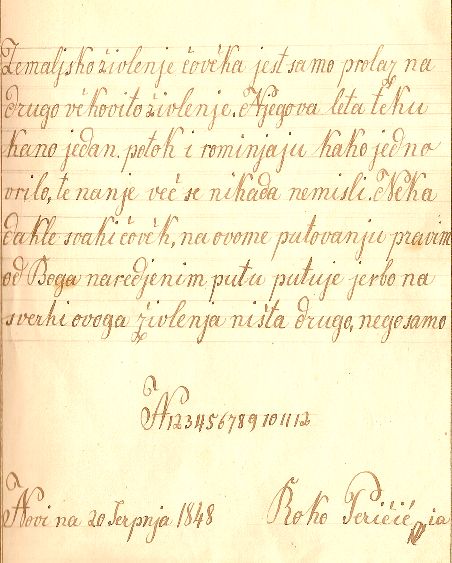 Zemaljsko živlenje čověka jest samo prolaz na
drugo věkovito živlenje. Njegova leta teku
kano jedan potok i rominjaju kako jedno
vrilo, te nanje već se nikada nemisli. Neka
dakle svaki čověk, na ovome putovanju pravim
od Boga naredjenim putu putuje jerbo na
sverhi ovoga živlenja ništa drugo, nego samo
N 1 2 3 4 5 6 7 8 9 10 11 12
Novi na 20 Serpnja 1848 Roko Peričić